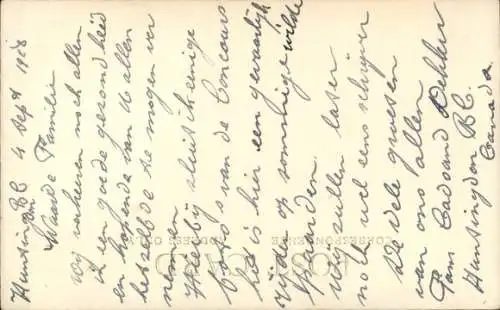 Huntingdon BC 4 Sept 1928
Waarde Familie
Wij verkeeren noch allen
in een goede gezondheid
en hopende van U allen
hetzelfde te mogen ver
nemen
Hierbij sluit ik eenige
foto's van de Concours
het is hier een gevaarlijk
rijde op sommige wilde
paarden
wij zullen later
nog wel eens schrijven
de vele groeten
van ons allen
Fam Dekker
Huntingdon B.C.
Canada
CORRESPONDENCE
ADDRESS ONLY
POST CARD